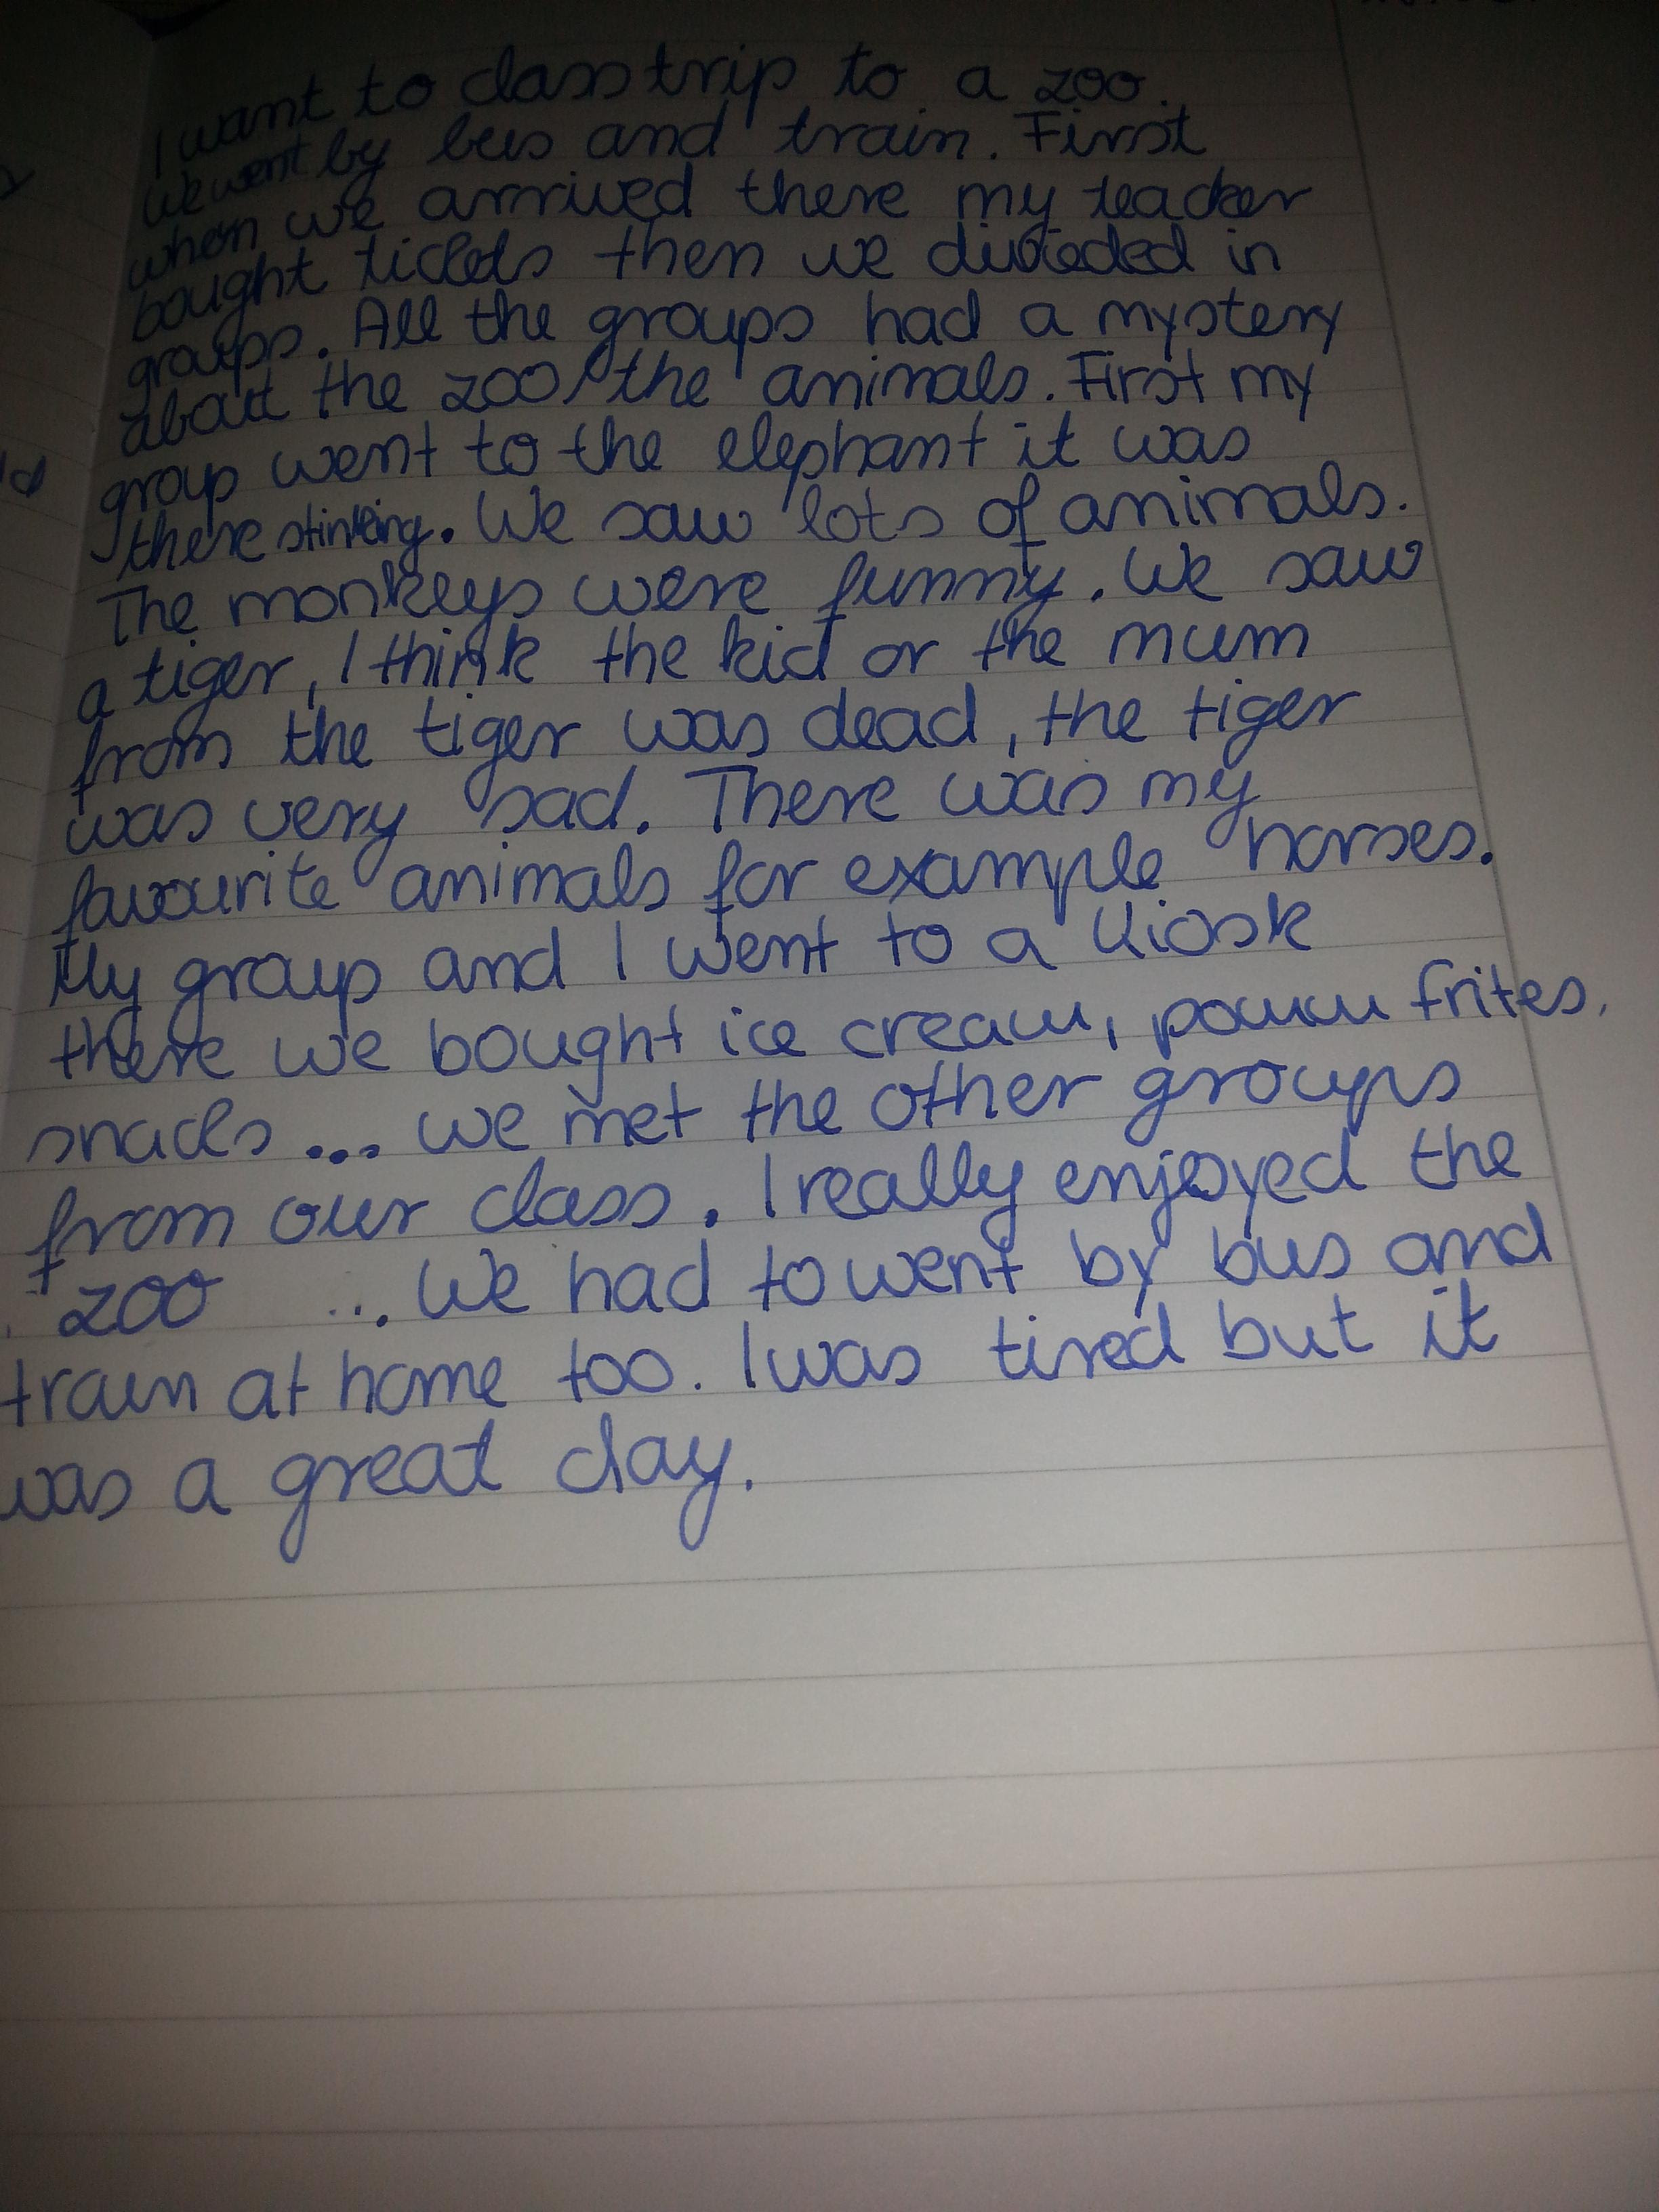 I want to class trip to a zoo.
We went by bus and train. First
when we arrived there my teacher
bought tickets then we divided in
groups. All the groups had a mystery
about the zoo/the animals. First my
group went to the elephant it was
there stinking. We saw lots of animals.
The monkeys were funny. We saw
a tiger, I think the kid or the mum
from the tiger was dead, the tiger
was very sad. There was my
favourite animals for example horses.
My group and I went to a Kiosk
there we bought ice cream, pomm frites,
snacks ... we met the other groups
from our class. I really enjoyed the
zoo ... We had to went by bus and
train at home too. I was tired but it
was a great day.